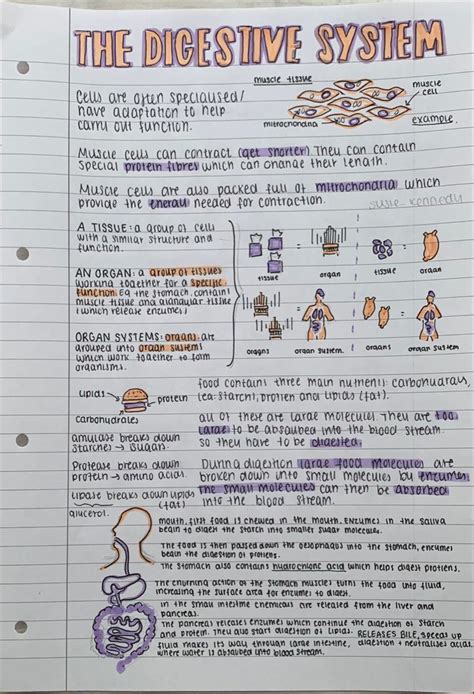 THE DIGESTIVE SYSTEM
muscle tissue
muscle cell
mitochondria
example.
Cells are often specialised/
have adaptation to help
carry out function.
Muscle cells can contract (get shorter). They can contain
special protein fibres which can change their length.
Muscle cells are also packed full of mitochondria which
provide the energy needed for contraction.
susie kennedy
A TISSUE: a group of cells
with a similar structure and
function.
tissue
organ
tissue
organ
AN ORGAN: a group of tissues
working together for a specific
function. Eg the stomach, contain
muscle tissue and glandular tissue
(which release enzymes)
ORGAN SYSTEMS: organs are
grouped into organ systems
which work together to form
organisms.
organs
organ system.
organs
organ system
lipids
protein
carbohydrates
food contains three main nutrients: carbohydrates,
(eg starch), protien and lipids (fat).
all of these are large molecules. They are too
large to be absorbed into the blood stream.
so they have to be digested.
amylase breaks down
starches → sugars.
Protease breaks down
protein → amino acids.
lipase breaks down lipids
(fat)
glycerol.
During digestion large food molecules are
broken down into small molecules by enzymes.
The small molecules can then be absorbed
into the blood stream.
mouth, first food is chewed in the mouth. Enzymes in the saliva
begin to digest the starch into smaller sugar molecules.
The food is then passed down the oesophagus into the stomach, enzymes
begin the digestion of protiens.
The stomach also contains hydrochloric acid which helps digest protiens.
The churning action of the stomach muscles turns the food into fluid,
increasing the surface area for enzymes to digest.
in the small intestine chemicals are released from the liver and
pancreas.
The pancreas releases enzymes which continue the digestion of starch
and protein. They also start digestion of lipids. RELEASES BILE, speeds up
digestion + neutralises acids.
fluid makes its way through large intestine,
where water is absorbed into blood stream.